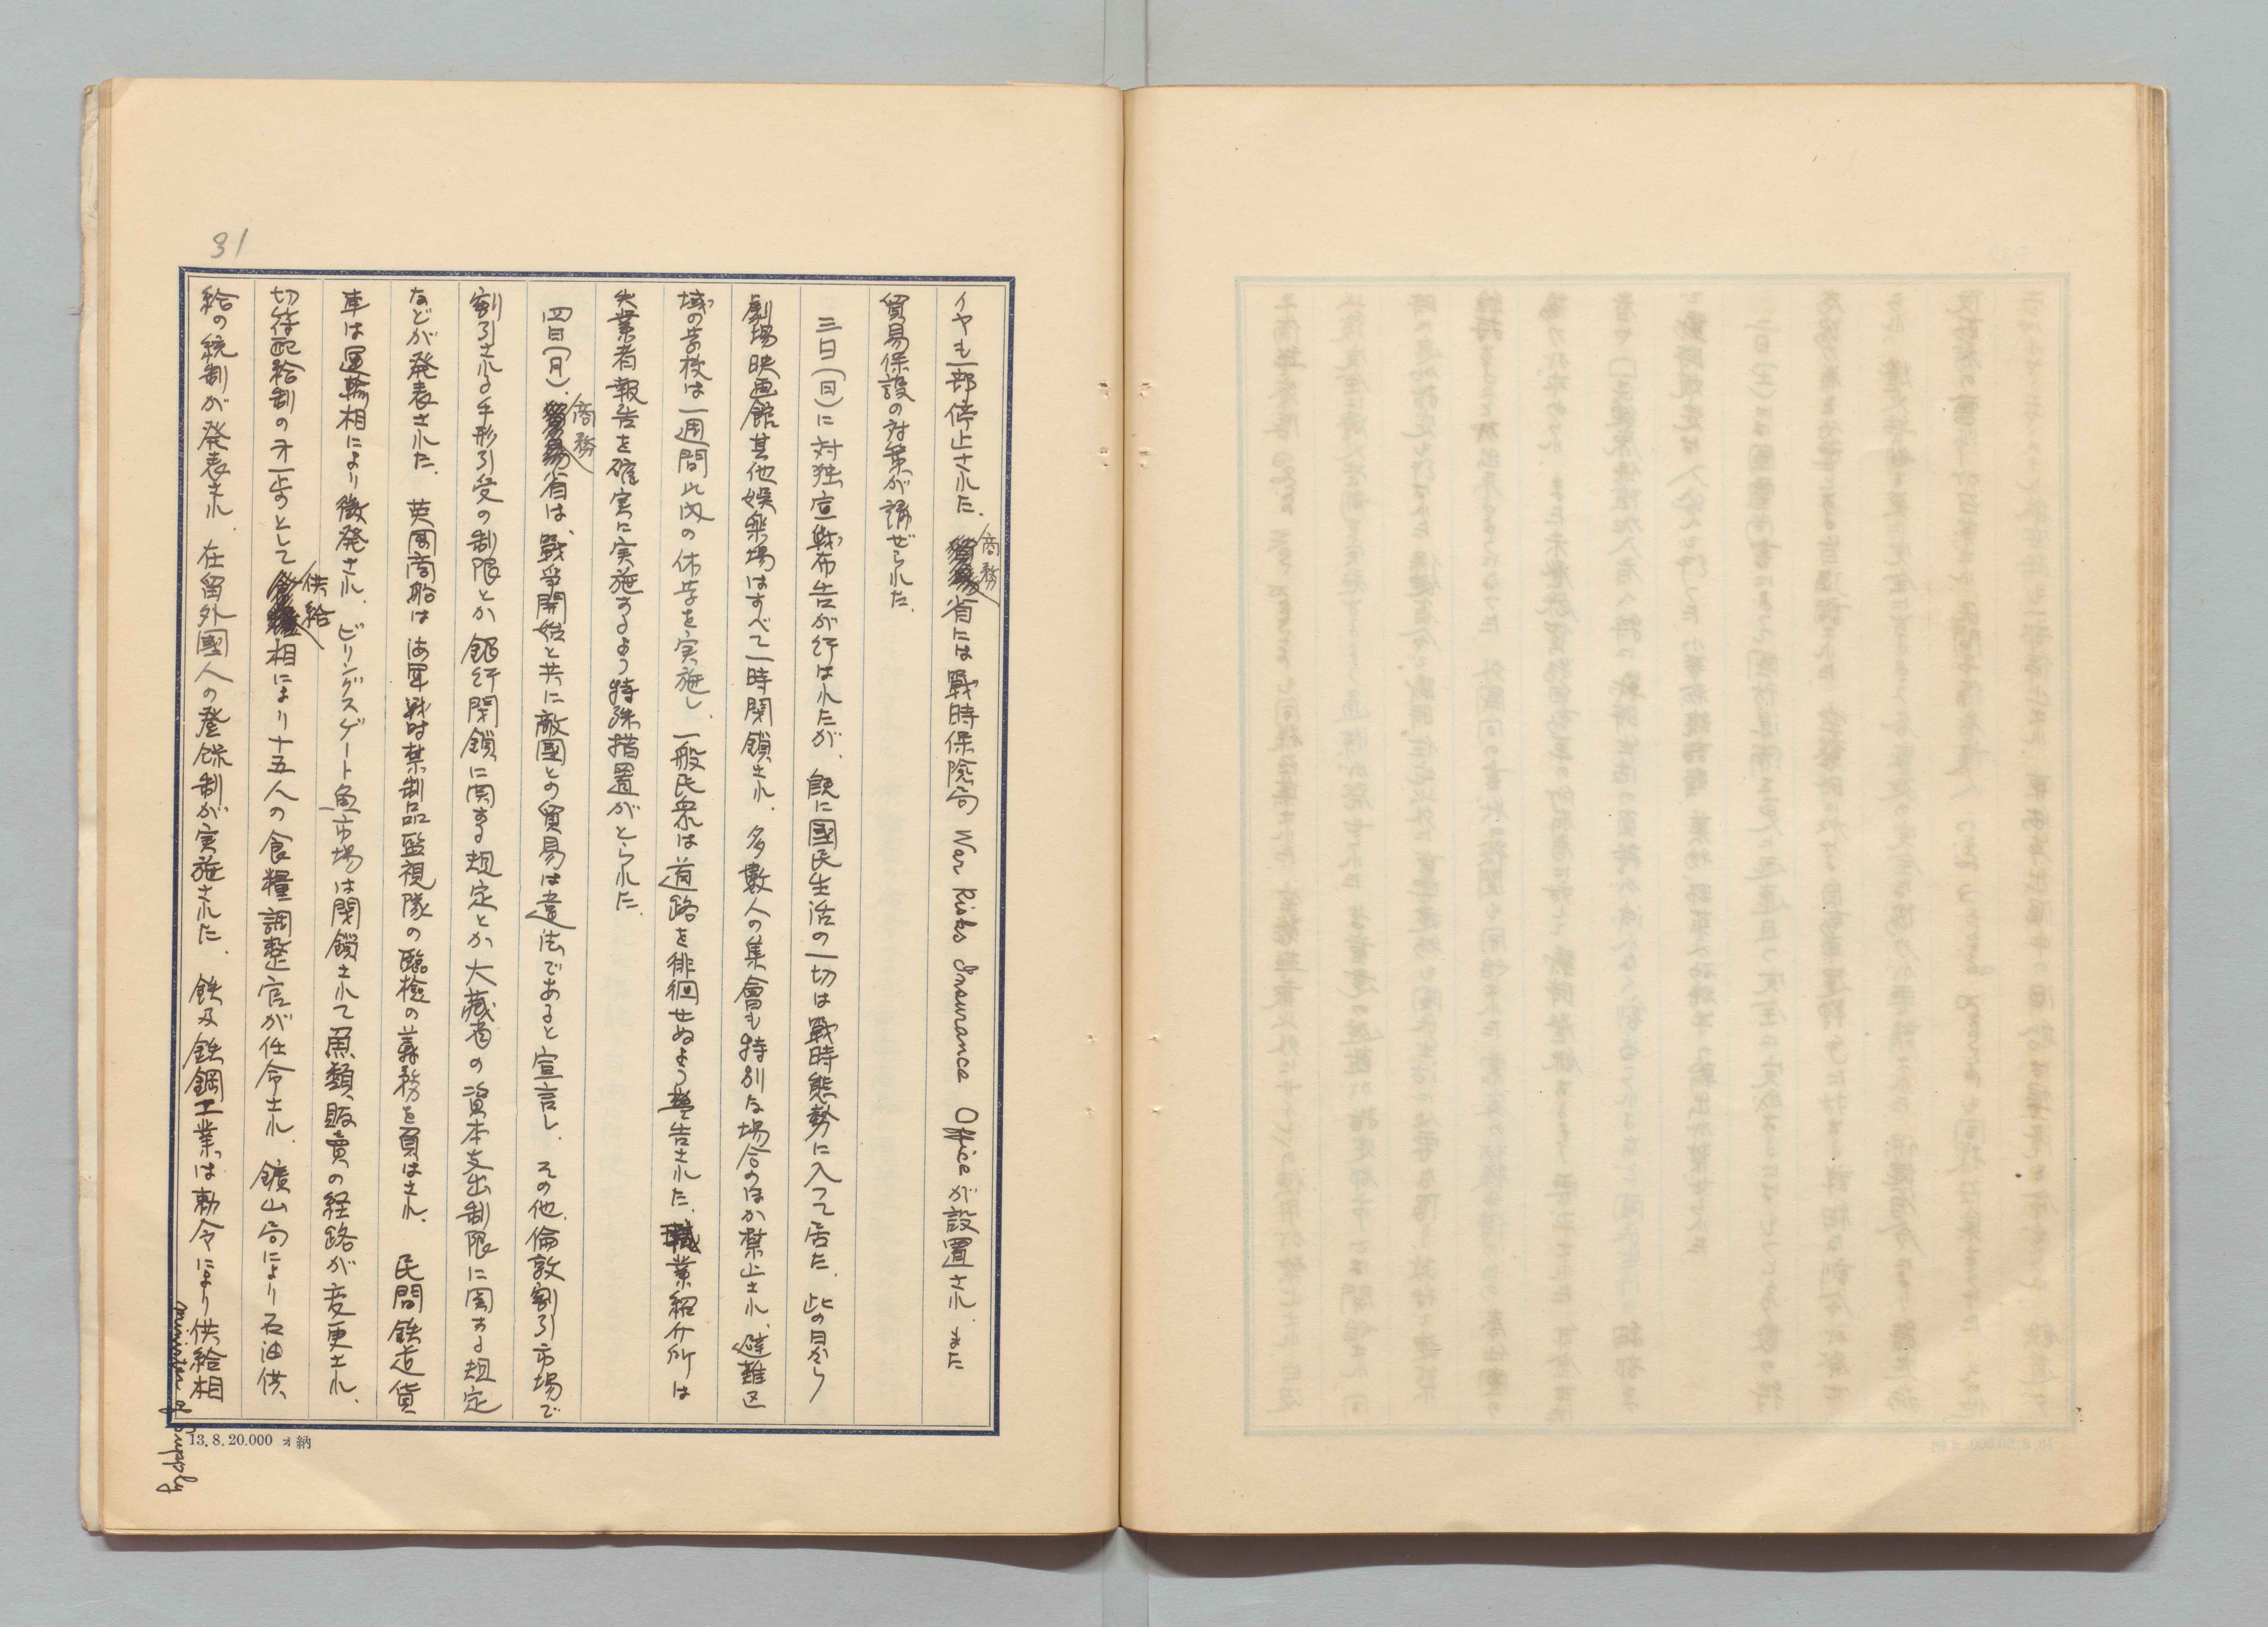 31
イヤも一部停止された。商務省には戰時保険局 War Risks Insurance Office が設置され、また
貿易保設の対策が講ぜられた。
三日(日)に対独宣戦布告が行はれたが、既に國民生活の一切は戰時態勢に入って居た。此の日から
劇場映画館其他娯楽場はすべて一時閉鎖され、多數人の集會も特別な場合のほか禁止され、避難区
域の学校は一週間以内の休学を実施し、一般民衆は道路を徘徊せぬよう警告された。職業紹介所は
失業者報告を確実に実施するよう特殊措置がとられた。
四日(月)、商務省は、戰爭開始と共に敵國との貿易は違法であると宣言し、その他、倫敦割引市場で
割引される手形引受の制限とか銀行閉鎖に関する規定とか大藏省の資本支出制限に関する規定
などが発表された。英国商船は海軍戦時禁制品監視隊の臨検の義務を負はされ、民間鉄道貨
車は運輸相により徴発され、ビリングスゲート魚市場は閉鎖されて魚類販賣の経路が変更され、
切符配給制の才一歩として供給相により十五人の食糧調整官が任命され、鑛山局により石油供
給の統制が発表され、在留外國人の登録制が実施された。鉄及鉄鋼工業は勅令により供給相
minister of supply
13.8.20.000 オ納